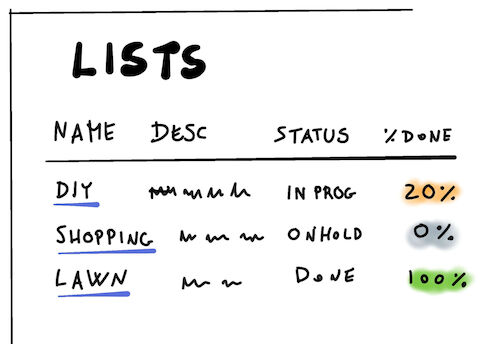 LISTS
NAME DESC STATUS % DONE
DIY IN PROG 20%
SHOPPING ONHOLD 0%
LAWN DONE 100%